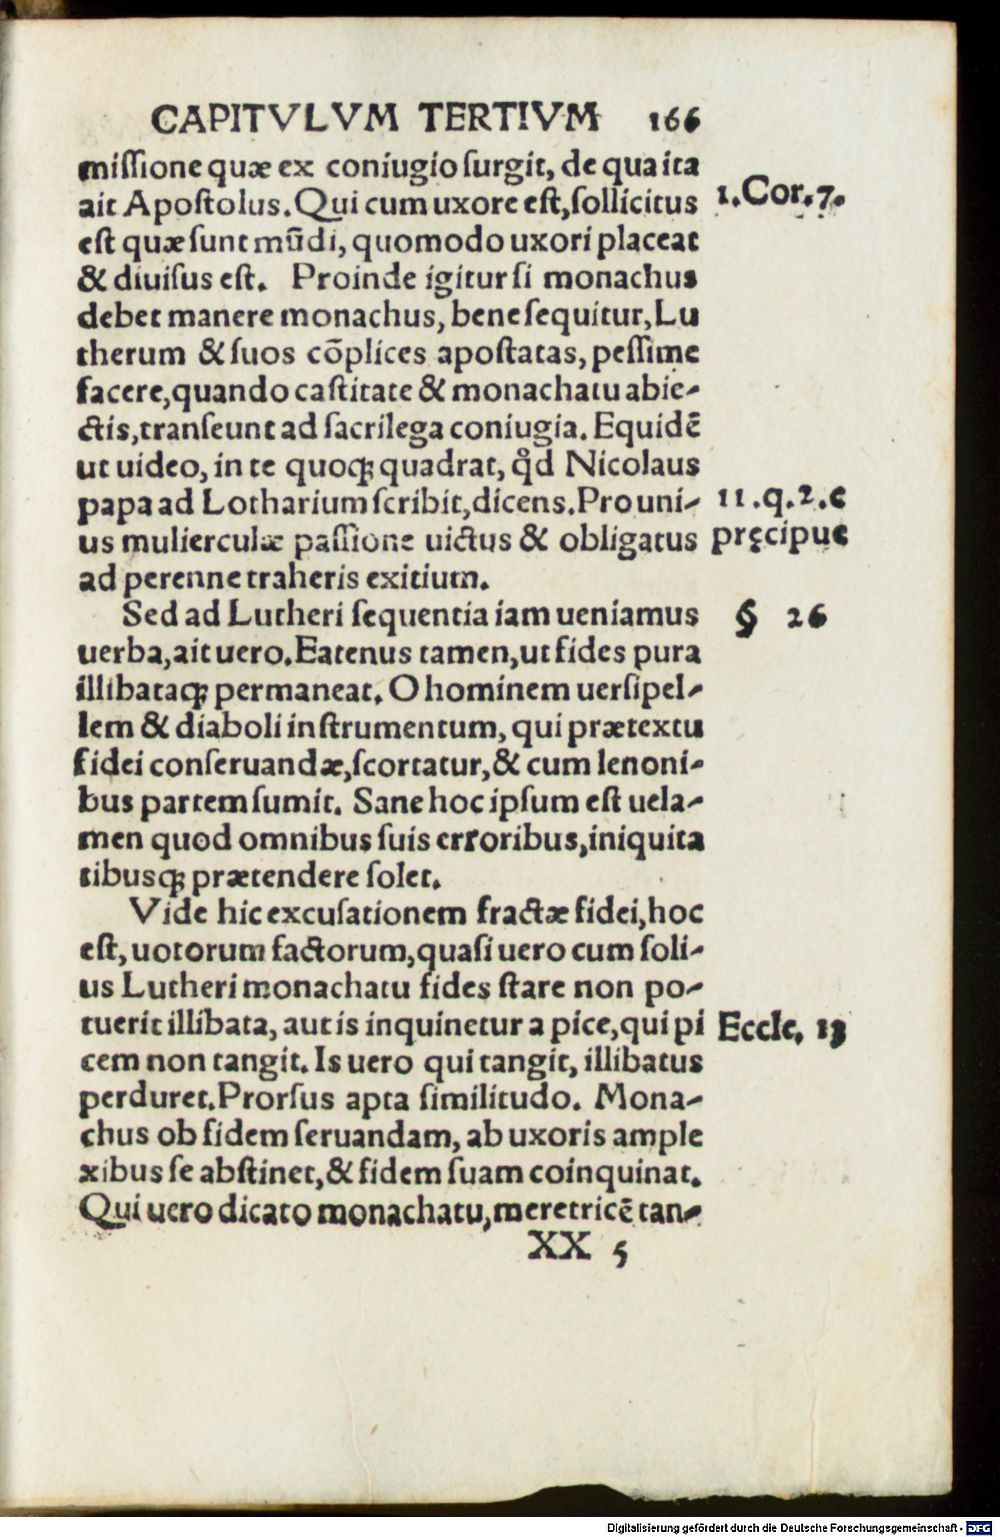 CAPITVLVM TERTIVM 166
missione quæ ex coniugio surgit, de qua ita
ait Apostolus. Qui cum uxore est, sollicitus 1. Cor. 7.
est quæ sunt mūdi, quomodo uxori placeat
& diuisus est. Proinde igitur si monachus
debet manere monachus, bene sequitur, Lu
therum & suos cōplices apostatas, pessime
facere, quando castitate & monachatu abie-
ctis, transeunt ad sacrilega coniugia. Equidē
ut uideo, in te quoqꝫ quadrat, qd̓ Nicolaus
papa ad Lotharium scribit, dicens. Pro uni- 11. q. 2. c
us mulierculæ passione uictus & obligatus pręcipue
ad perenne traheris exitium.
Sed ad Lutheri sequentia iam ueniamus § 26
uerba, ait uero. Eatenus tamen, ut fides pura
illibataqꝫ permaneat. O hominem uersipel-
lem & diaboli instrumentum, qui prætextu
fidei conseruandæ, scortatur, & cum lenoni-
bus partem sumit. Sane hoc ipsum est uela-
men quod omnibus suis erroribus, iniquita
tibusqꝫ prætendere solet.
Vide hic excusationem fractæ fidei, hoc
est, uotorum factorum, quasi uero cum soli-
us Lutheri monachatu fides stare non po-
tuerit illibata, aut is inquinetur a pice, qui pi Eccle. 13
cem non tangit. Is uero qui tangit, illibatus
perduret. Prorsus apta similitudo. Mona-
chus ob fidem seruandam, ab uxoris ample
xibus se abstinet, & fidem suam coinquinat.
Qui uero dicato monachatu, meretricē tan-
XX 5
Digitalisierung gefördert durch die Deutsche Forschungsgemeinschaft - DFG